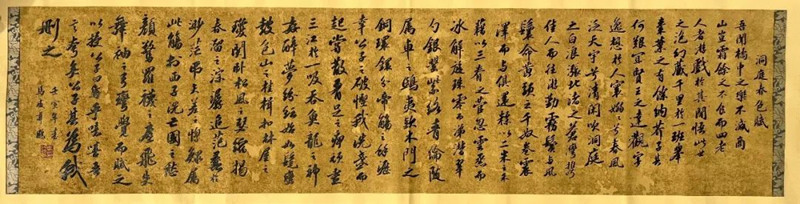 洞庭春色賦
吾聞橘中之樂不減商
山豈霜餘之不食而四老
人者游戲於其間悟此世
之泡幻藏千里於一班舉
棗葉之有餘納芥子其
何艱宜賢王之達觀寄
逸想於人寰嫋嫋兮春風
泛天宇兮清閑吹洞庭
之白浪漲北渚之蒼灣攜
佳人而往游勤霧鬢與風
鬟命黃頭之千奴卷震
澤而與俱還糅以二米之禾
藉以三脊之菅忽雲烝而
冰解旋珠零而涕潸翠
勺銀罌紫絡青倫隨
屬車之鴟夷款木門之
銅鐶分帝觴之餘瀝
幸公子之破慳我洗盞而
起嘗散腰足之痹頑盡
三江於一吸吞魚龍之神
姦醉夢紛紜始如髦蠻
鼓包山之桂楫扣林屋之
瓊關臥松風之瑟縮揭
春溜之淙潺追范蠡於
渺茫吊夫差之惸鰥屬
此觴於西子洗亡國之愁
顏驚羅襪之塵飛失
舞袖之弓彎覺而賦之
以授公子曰烏乎噫嘻吾
言夸矣公子其為我
刪之
壬寅年書